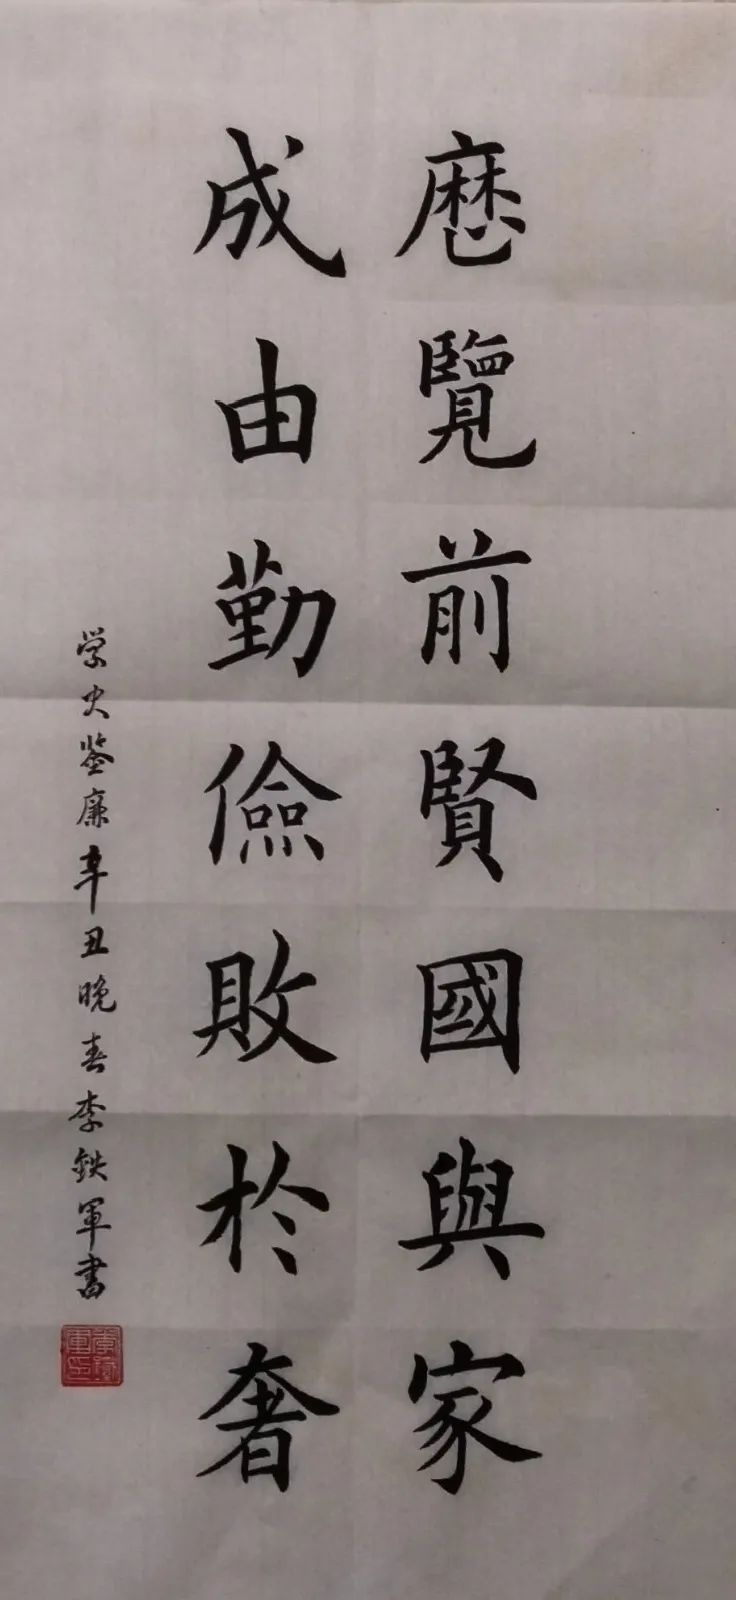 歷覽前賢國與家
成由勤儉敗於奢
学史鉴廉辛丑晚春李鉄軍書